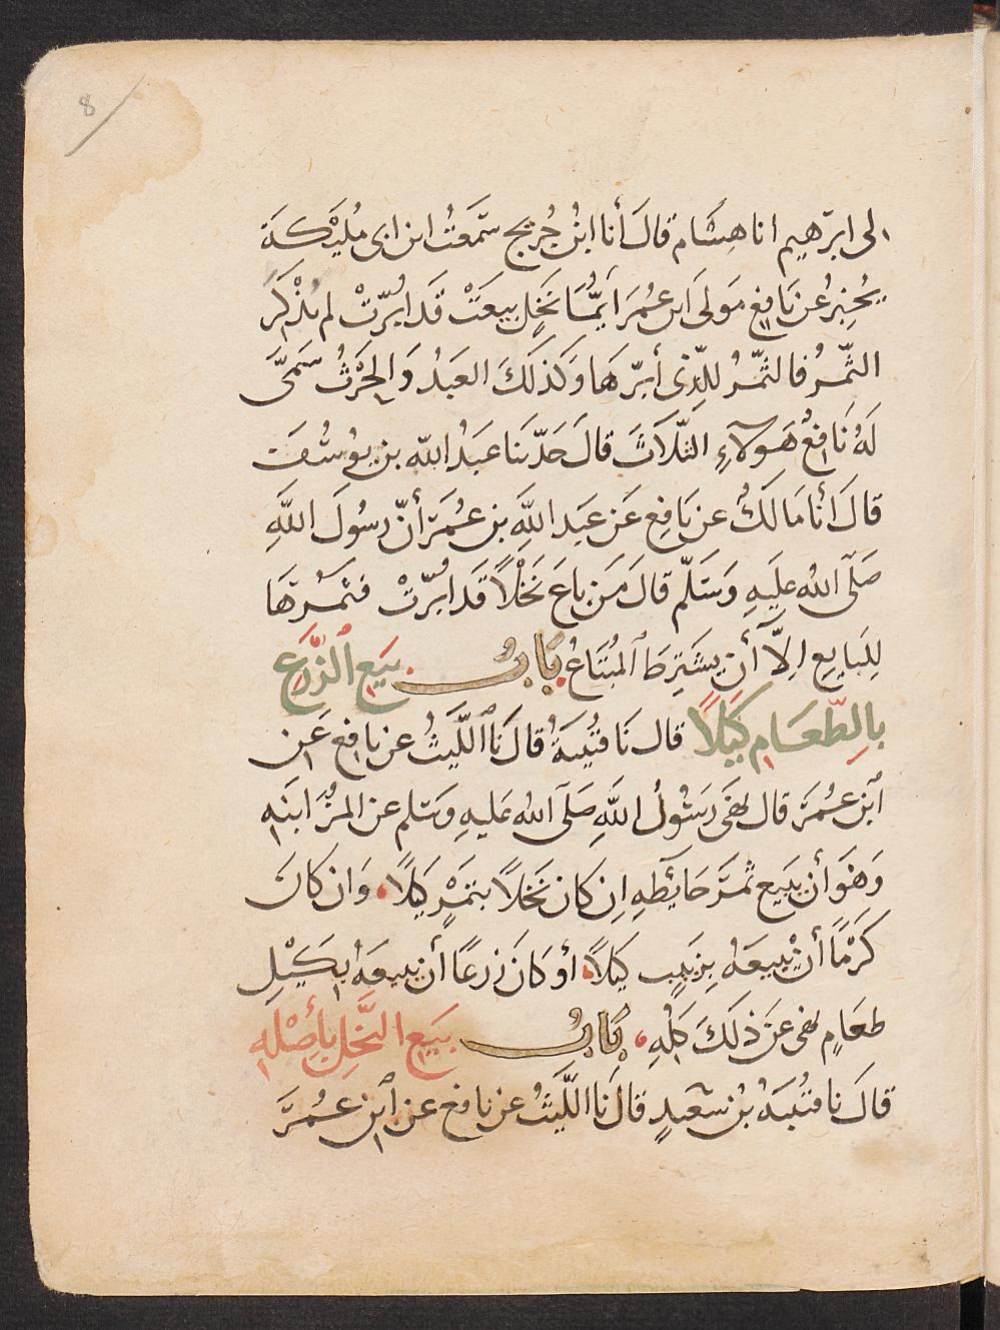 8
لى ابرٰهيم انا هِشَام قالَ أنا ابنُ جُريج سَمعَتُ ابن ابى مُليَكةَ
يُخبِرُ عن نَافِعٍ مَولى ابن عُمَرَ ايمَُّا نَخَلٍ بيعَتْ قَد ابُرّتْ لم يُذْكَرِ
الثَّمرُ فالثمَّرُ للّذى أبّرهَا وَكذلكَ العَبدُ وَالحَرْثُ سَمَّى
لَهُ نَافعٌ هَولآءِ الثّلاَثَ قالَ حَدّثنَا عبَدُ اللّه بن يوسُفَ
قالَ أنا مَالكٌ عن نَافِعٍ عَن عَبد اللَّهِ بن عُمَرَ أنّ رسُولَ اللَّهِ
صَلّى اللهُ علَيهِ وَسَلّم قالَ مَن باعَ نَخْلاً قَد ابُرّتْ فَثَمرتهَا
لِلبَايعِ اِلاّ أن يشَترِطَ المُبتَاعُ بَابُ بَيع الزَّرَعِ
بالِطّعَامِ كَيَلاً قال نَا قتُيبَةُ قالَ نَا اللّيَثُ عن نافعٍ عَن
ابن عُمَرَ قال نهَى رَسُولُ اللَّهِ صَلّى اللهُ عَليهِ وسَلم عن المزُابنَه
وَهَوَ أن يبَيع ثمَرَ حَائطهِ اِن كان نَخلاً بتمَرٍ كَيلاً وَان كانَ
كَرْمًا أن يبَيعَهُ بِزَبيبٍ كَيلاً أو كَانَ زرعًا أن يبيعَهُ بِكَيْلِ
طعَامٍ نهى عَن ذلكَ كلُهِ بَابُ بَيَع النَّخِل بأصْلهِ
قالَ نا قتُيبَةُ بنُ سَعيدٍ قالَ نَا اللّيَثُ عن نافعٍ عن ابن عُمَرَ